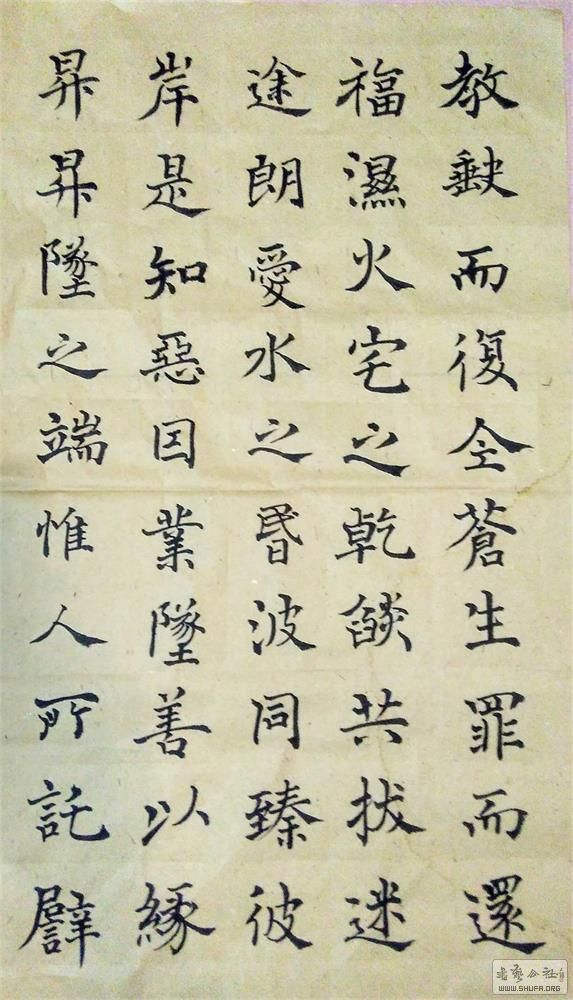 教缺而復全蒼生罪而還
福濕火宅之乾燄共拔迷
途朗愛水之昬波同臻彼
岸是知惡因業墜善以緣
昇昇墜之端惟人所託譬
WWW.SHUFA.ORG